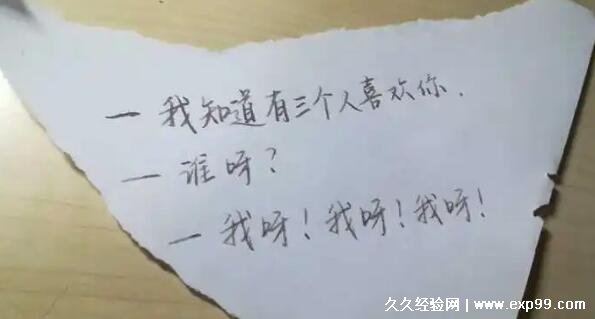 — 我知道有三个人喜欢你.
— 谁呀?
— 我呀!我呀!我呀!
久久经验网 | www.exp99.com